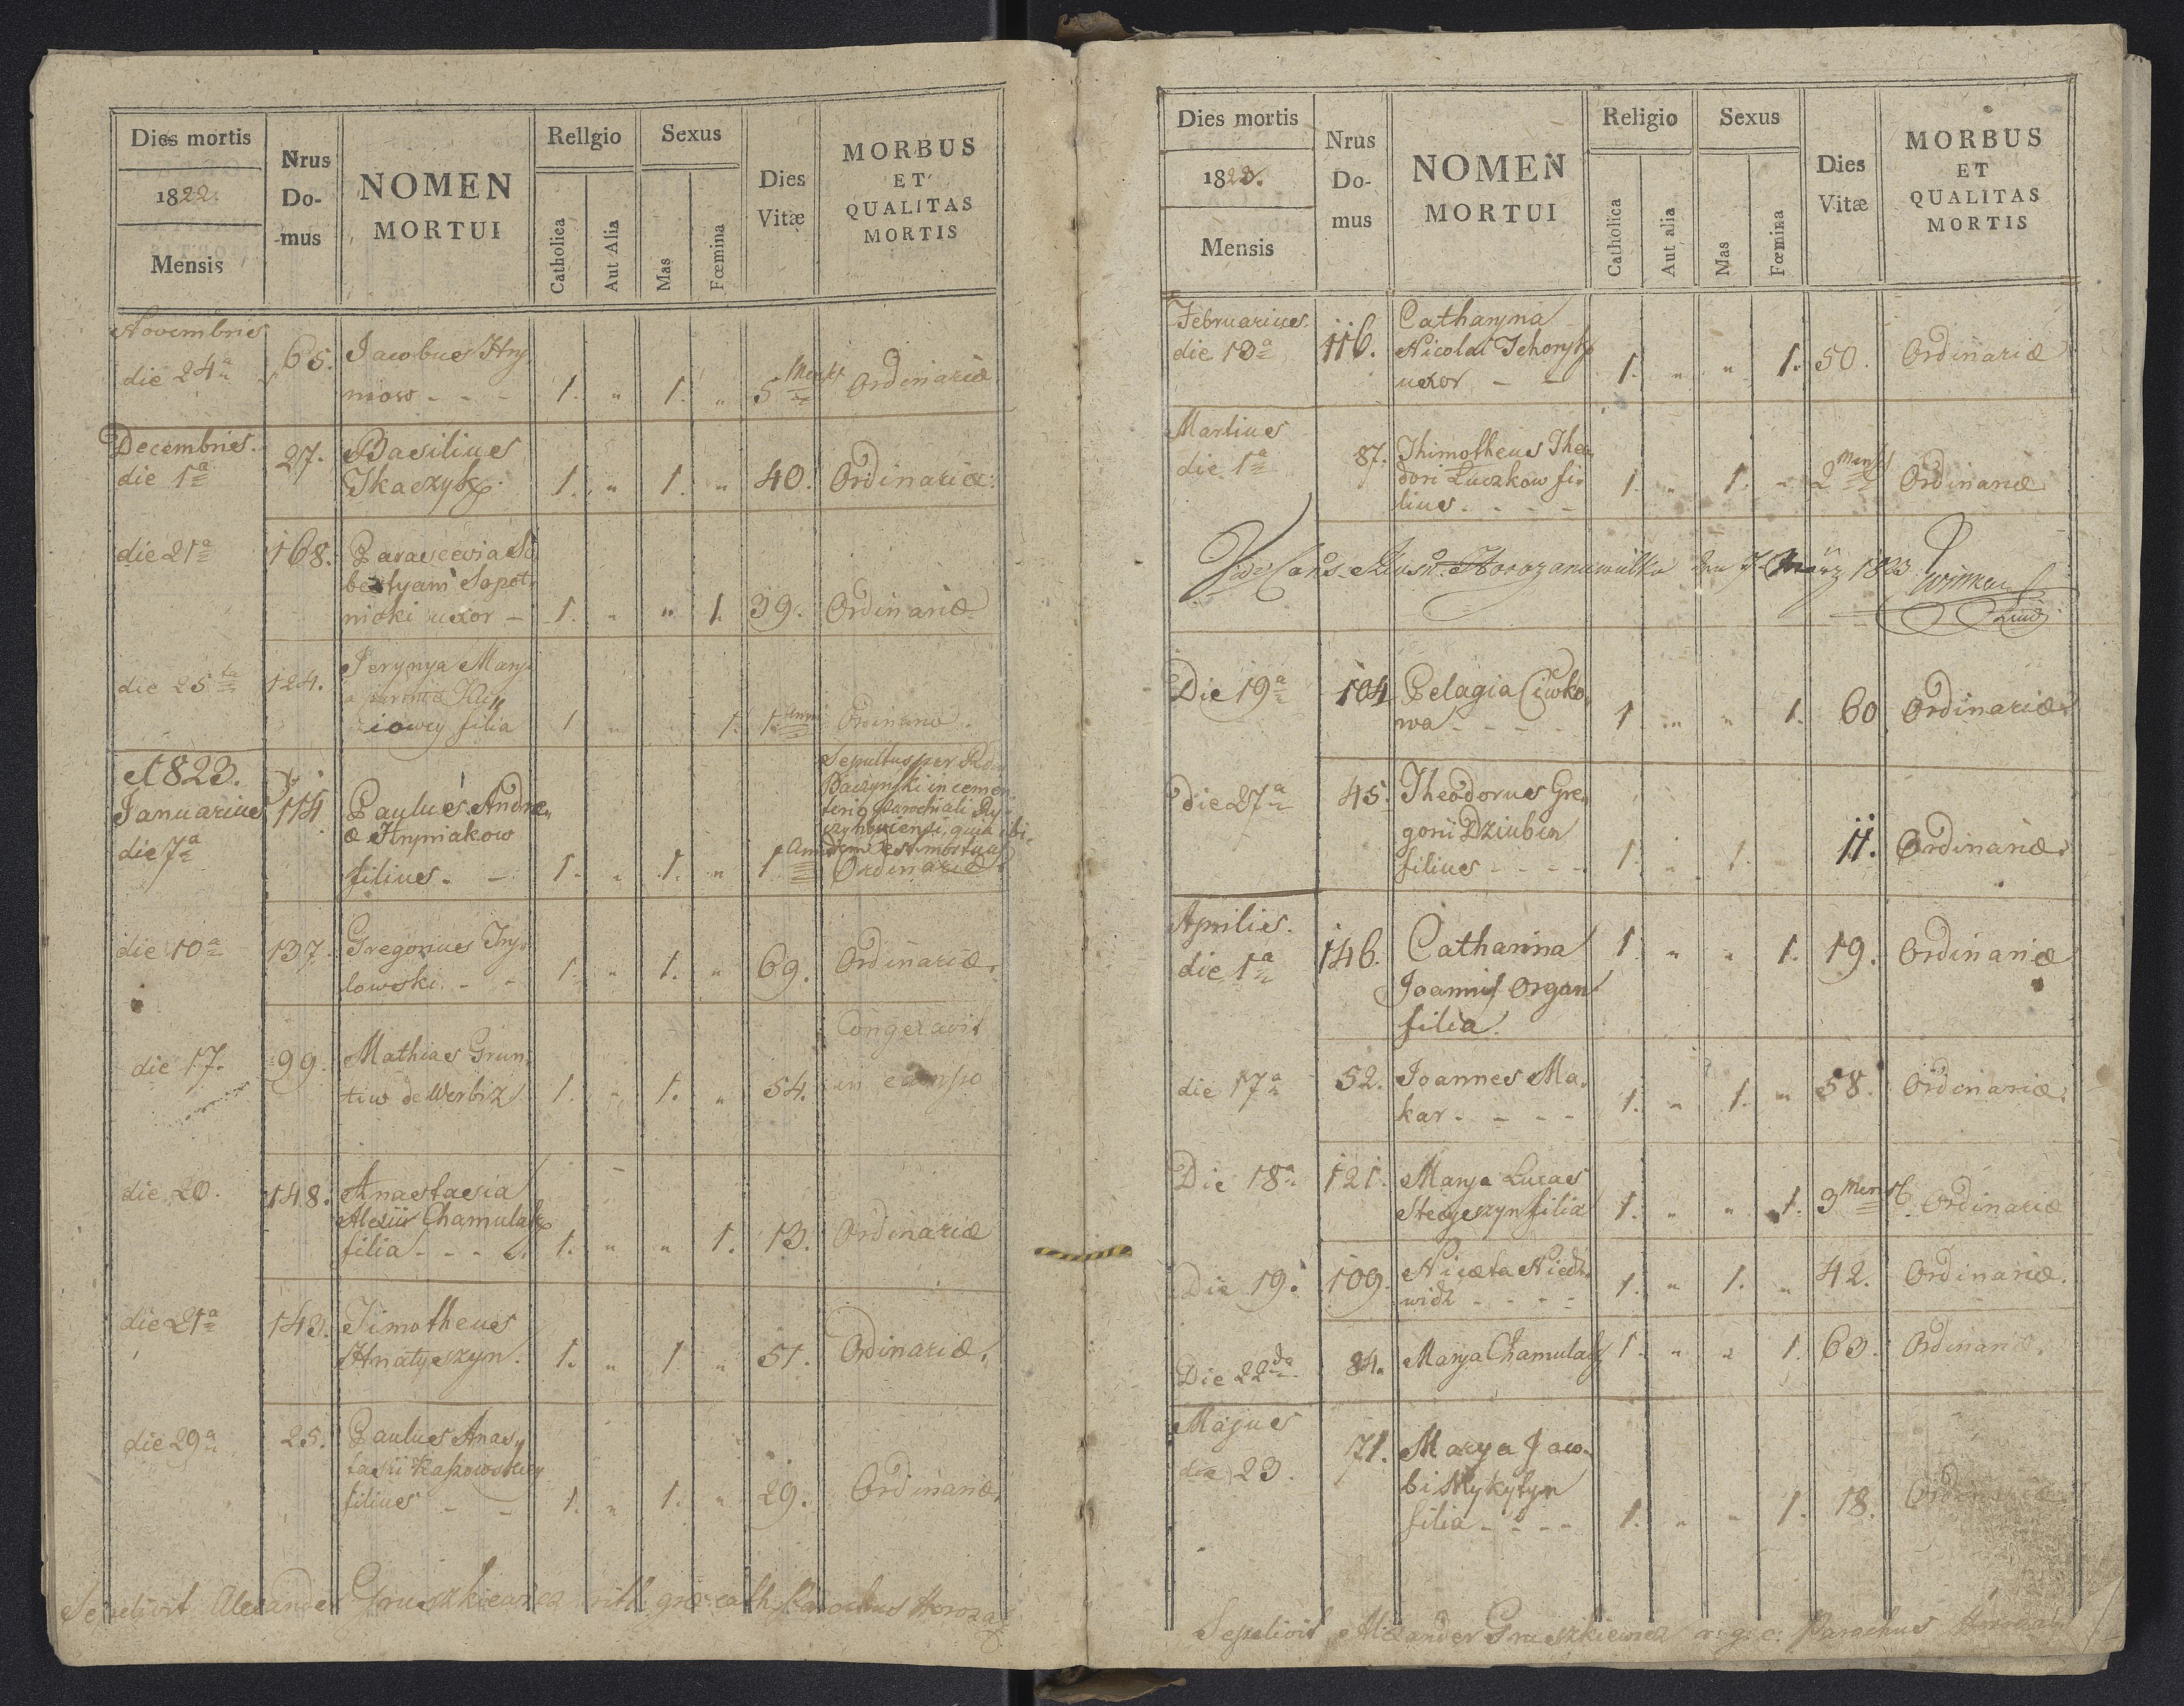 Dies mortis
1822.
Mensis
Nrus
Do-
-mus
NOMEN
MORTUI
Rellgio
Catholica
Aut Alia
Sexus
Mas
Fœmina
Dies
Vitæ
MORBUS
ET
QUALITAS
MORTIS
Novembris
die 24a 65. Jacobus Hry
niow - - - 1. " 1. " 5 Mens Ordinariæ
Decembris.
die 1a 27. Basilius
Tkaczyk 1. " 1. " 40. Ordinariæ.
die 21a 168. Parascevia Se
bestyani Sopot
nicki uxor - 1. " " 1. 39. Ordinariæ
die 25ta 124. Marya
iowey filia 1 " 1. 1 Anni
1823.
Januarius 114. Paulus Andre
die 7a æ Hryniakow
filius - - 1. " 1. " 1 Anni
Sepultus per
Baczynski in cemen
terio Parochiali
quia ibi
dem est mortuus
Ordinariæ
die 10a 137. Gregorius
lowski. - - 1. " 1. " 69. Ordinariæ.
die 17. 99. Mathias Grun
tiw de Werbiz 1. " 1. " 54. Congelavit
in campo
die 20. 148. Anastasia
Alexii Chamulak
filia - - - 1. " " 1. 13. Ordinariæ
die 21a 143. Timotheus
Hnatyszyn. 1. " 1 " 51. Ordinariæ.
die 29a 25. Paulus Anas
tasii
filius - - 1. " 1. " 29. Ordinariæ.
Sepelivit Alexander Gruszkiewicz rith. græ. cath. Parochus
Dies mortis
1823.
Mensis
Nrus
Do-
mus
NOMEN
MORTUI
Religio
Catholica
Aut alia
Sexus
Mas
Fœmina
Dies
Vitæ
MORBUS
ET
QUALITAS
MORTIS
Februarius.
die 13a 116. Catharyna
Nicolai
uxor - - 1. " " 1. 50. Ordinariæ
Martius
die 1a 87. Thimotheus Theo
dori Luczkow fi
lius - - - - 1. " 1. " 2 Mens Ordinariæ
den 7 März 1823
Die 19a 104 Pelagia Ciwko
wa - - - - 1. " " 1. 60 Ordinariæ
die 27a 45. Theodorus Gre
gorii Dziubin
filius - - - - 1. " 1. 11. Ordinariæ.
Aprilis.
die 1a 146. Catharina 1. " " 1. 19. Ordinariæ
Joannis Organ
filia.
die 17a 52. Joannes Ma
kar - - - - 1. " 1. " 58. Ordinariæ.
Die 18a 121. Marya Lucas
filia 1. " " 1. 3 Mens Ordinariæ
Die 19. 109. Niceta Niedz
widz - - - - 1. " 1. " 42. Ordinariæ.
Die 22da 84. Marya Chamulak 1. " " 1. 63. Ordinariæ.
Majus
die 23. 71. Marya Jaco
bi Mykytyn
filia - - - - 1. " " 1. 18. Ordinariæ
Sepelivit Alexander Gruszkiewicz r. g. c. Parochus